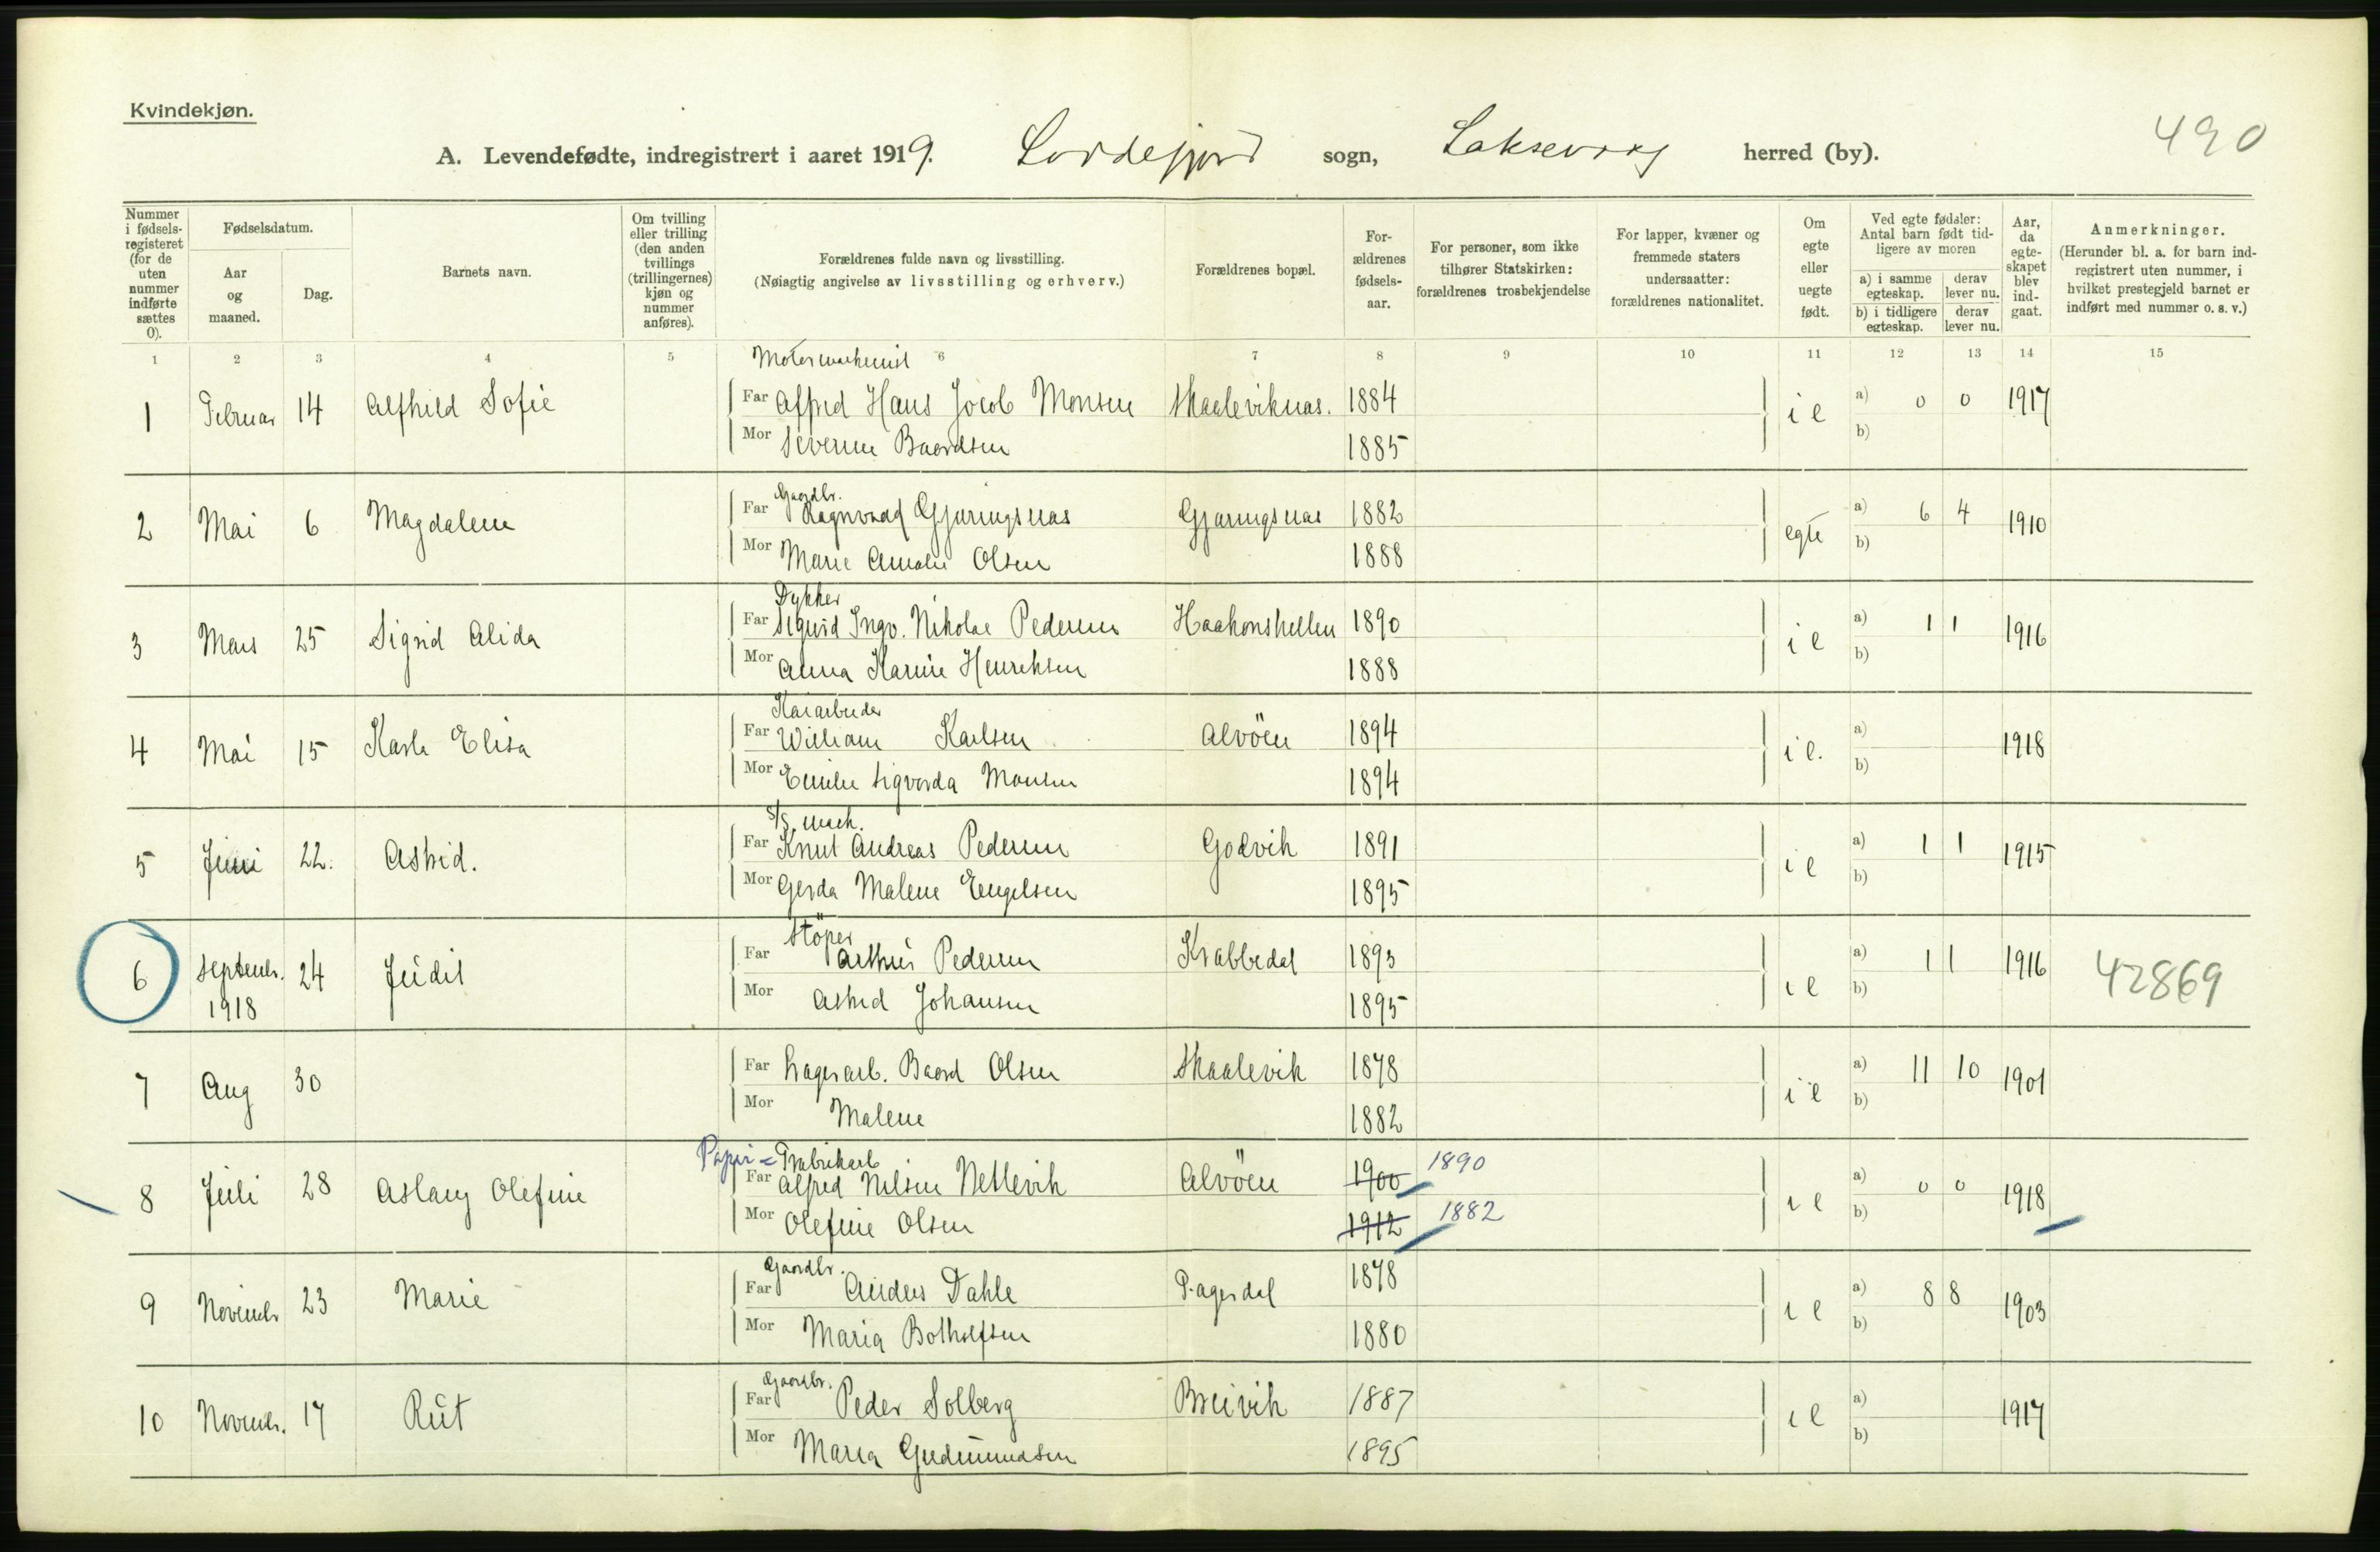 Kvindekjøn.
490
A. Levendefødte, indregistrert i aaret 1919. Lordefjord sogn, Laksevaag herred (by).
Nummer i fødsels-registeret (for de uten nummer indførte sættes 0).
Fødselsdatum.
Aar og maaned.
Dag.
Barnets navn.
Om tvilling eller trilling (den anden tvillings (trillingernes) kjøn og nummer anføres).
Forældrenes fulde navn og livsstilling.
(Nøiagtig angivelse av livsstilling og erhverv.)
Forældrenes bopæl.
For-ældrenes fødsels-aar.
For personer, som ikke tilhører Statskirken: forældrenes trosbekjendelse
For lapper, kvæner og fremmede staters undersaatter: forældrenes nationalitet.
Om egte eller uegte født.
Ved egte fødsler: Antal barn født tid-ligere av moren
a) i samme egteskap. derav lever nu.
b) i tidligere egteskap. derav lever nu.
Aar, da egte-skapet blev ind-gaat.
Anmerkninger.
(Herunder bl. a. for barn ind-registrert uten nummer, i hvilket prestegjeld barnet er indført med nummer o. s. v.)
1 2 3 4 5 6 7 8 9 10 11 12 13 14 15
Motormaskinist
1 Februar 14 Alfhild Sofie Far Alfred Hans Jocob Monsen Skaaleviknæs. 1884 i e a) 0 0 1917
Mor Severine Baardsen 1885 b)
Gaardbr.
2 Mai 6 Magdalene Far Ragnvald Gjæringsnæs Gjæringsnæs 1882 egte a) 6 4 1910
Mor Marie Amalie Olsen 1888 b)
Dykker
3 Mars 25 Sigrid Alida Far Sigurd Ingv. Nikolai Pedersen Haakonshellen 1890 i e a) 1 1 1916
Mor Anna Karine Henriksen 1888 b)
Kaiarbeider
4 Mai 15 Karla Elisa Far William Karlsen Alvöen 1894 i e. a) 1918
Mor Emilie Sigvarda Monsen 1894 b)
S/S. mask.
5 Juni 22. Astrid. Far Knut Andreas Pedersen Godvik 1891 i e a) 1 1 1915
Mor Gerda Malene Engelsen 1895 b)
Støper
6 Septembr. 1918 24 Judit Far Arthur Pedersen Krabbedal 1893 i e a) 1 1 1916 42869
Mor Astrid Johansen 1895 b)
7 Aug 30 Far Lagerarb. Baard Olsen Skaalevik 1878 i e a) 11 10 1901
Mor Malene 1882 b)
Papir = Fabrikarb
8 Juli 28 Aslaug Olefine Far Alfred Nilsen Netlevik Alvöen 1900 1890 i e a) 0 0 1918
Mor Olefine Olsen 1912 1882 b)
Gaardbr.
9 Novembr 23 Marie Far Anders Dahle 1878 i e a) 8 8 1903
Mor Maria Botholfsen 1880 b)
Gaardbr.
10 Novembr. 17 Rut Far Peder Solberg Breivik 1887 i e a) 1917
Mor Maria Gudmundsen 1895 b)